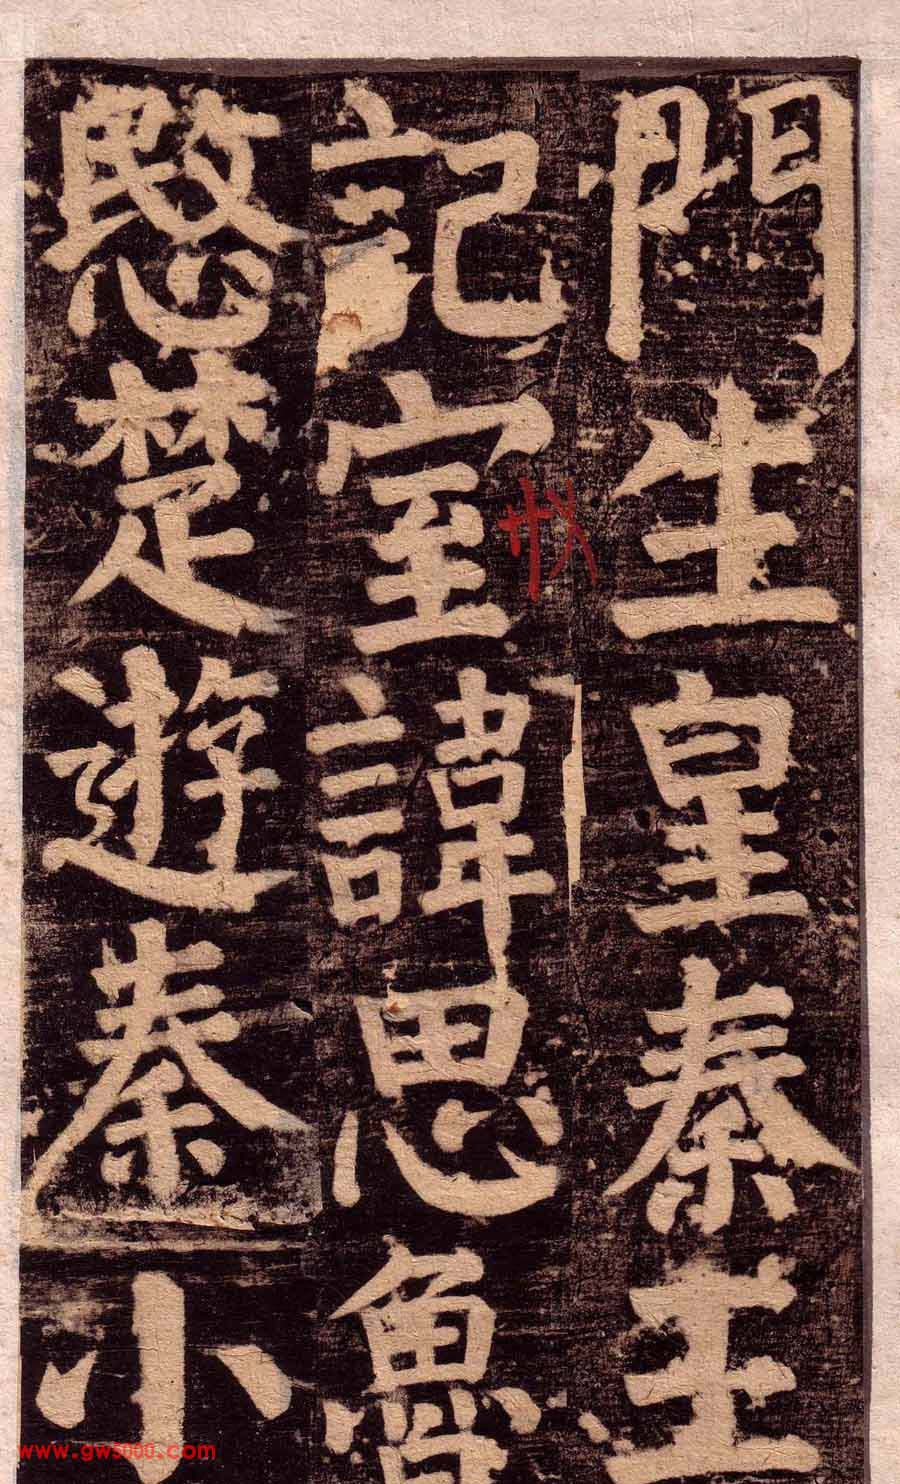 門生皇秦王
記室諱思魯
愍楚遊秦小
www.gw5000.com